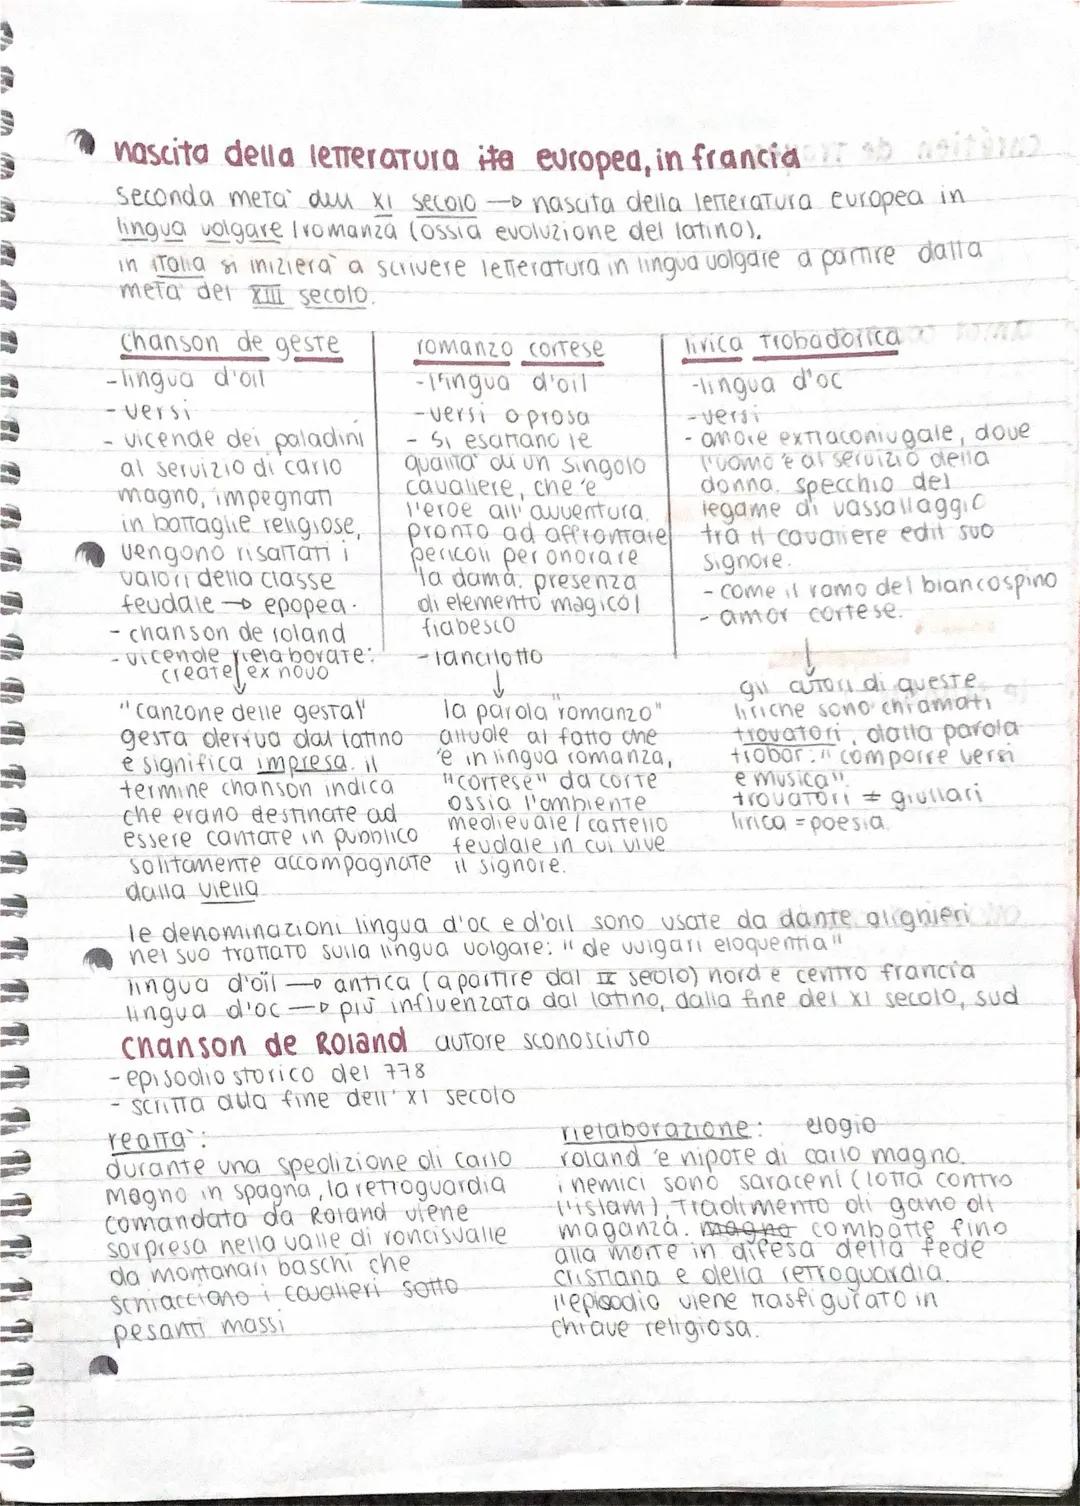 nascita della letteratura ita europea, in francia
seconda metà dell XI secolo → nascita della letteratura europea in
lingua volgare / romanza (ossia evoluzione del latino).
in italia si inizierà a scrivere letteratura in lingua volgare a partire dalla
metà del XIII secolo.
chanson de geste
- lingua d'oil
- versi
- vicende dei paladini
al servizio di carlo
magno, impegnati
in battaglie religiose,
vengono risaltati i
valori della classe
feudale → epopea.
- chanson de roland
- vicende rielaborate:
create ex novo
"canzone delle gesta"
gesta deriva dal latino
e significa impresa. il
termine chanson indica
che erano destinate ad
essere cantate in pubblico
solitamente accompagnate
dalla viella
romanzo cortese
- lingua d'oil
- versi o prosa
- si esaltano le
qualità di un singolo
cavaliere, che è
l'eroe all'avventura.
pronto ad affrontare
pericoli per onorare
la dama. presenza
di elemento magico/
fiabesco
- lancilotto
la parola "romanzo"
allude al fatto che
è in lingua romanza,
"cortese" da corte
ossia l'ambiente
medievale / castello
feudale in cui vive
il signore.
lirica trobadorica
- lingua d'oc
- versi
- amore extraconiugale, dove
l'uomo è al servizio della
donna. specchio del
legame di vassallaggio
tra il cavaliere ed il suo
signore.
- come il ramo del biancospino
- amor cortese.
gli autori di queste
liriche sono chiamati
trovatori, dalla parola
trobar: "comporre versi
e musica".
trovatori ≠ giullari
lirica = poesia
le denominazioni lingua d'oc e d'oil sono usate da dante alighieri
nel suo trattato sulla lingua volgare: "de vulgari eloquentia"
lingua d'oïl → antica (a partire dal IX secolo) nord e centro francia
lingua d'oc → più influenzata dal latino, dalla fine del XI secolo, sud
chanson de Roland autore sconosciuto
- episodio storico del 778
- scritta alla fine dell' XI secolo
realtà:
durante una spedizione di carlo
magno in spagna, la retroguardia
comandata da Roland viene
sorpresa nella valle di roncisvalle
da montanari baschi che
schiacciano i cavalieri sotto
pesanti massi
rielaborazione: elogio
roland è nipote di carlo magno.
i nemici sono saraceni (lotta contro
l'islam). Tradimento di gano di
maganza. magno combatte fino
alla morte in difesa della fede
cristiana e della retroguardia.
l'episodio viene trasfigurato in
chiave religiosa.